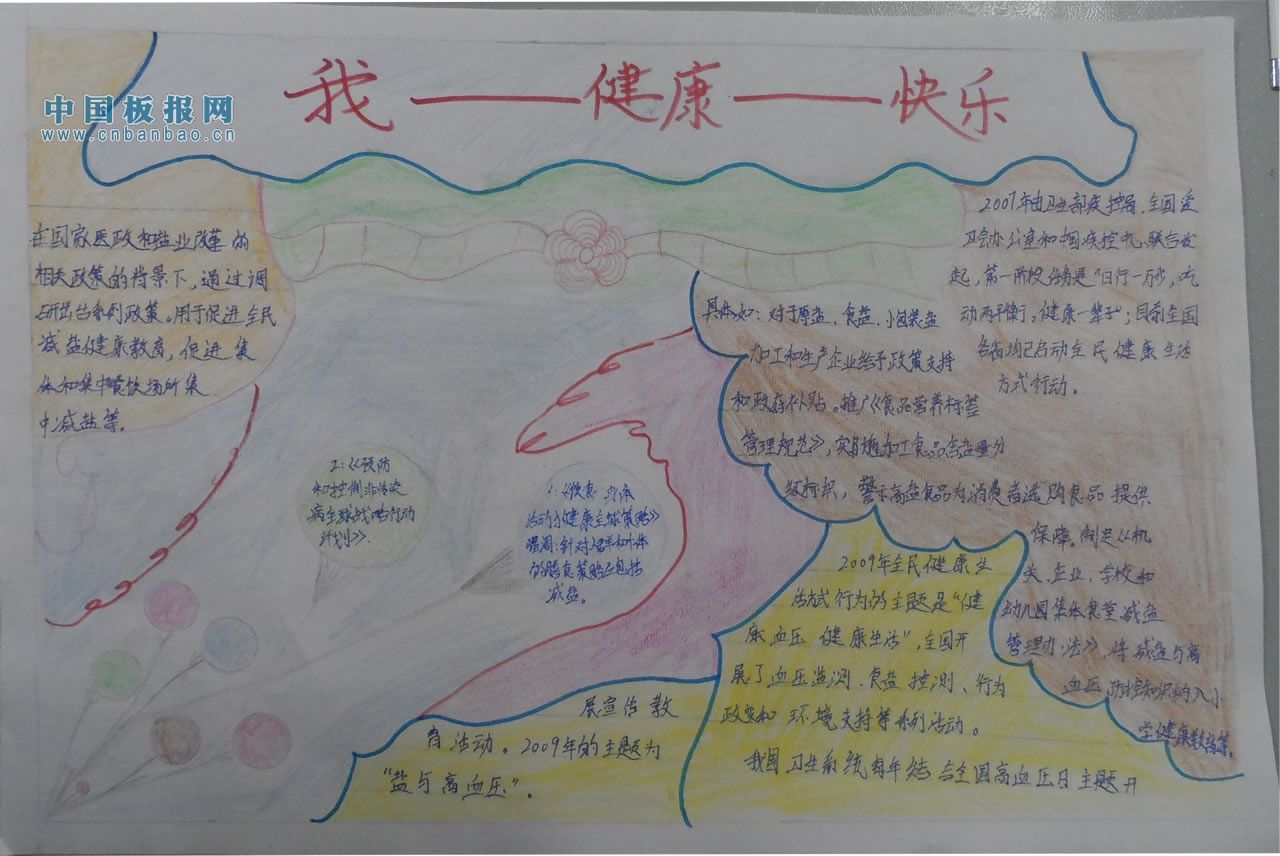 我——健康——快乐
中国板报网
www.cnbanbao.cn
在国家医政和盐业改革的
相关政策的背景下，通过调
研出台系列政策。用于促进全民
减盐健康教育，促进集
体和集中餐饮场所集
中减盐等。
2007年由卫生部疾控局、全国爱
卫会办公室和中国疾控中心联合发
起，第一阶段任务是“日行一万步，吃
动两平衡，健康一辈子”；目前全国
各省均已启动全民健康生活
方式行动。
具体如：对于原盐、食盐、小包装盐
加工和生产企业给予政策支持
和政府补贴。推广《食品营养标签
管理规范》，实施加工食品含盐量分
级标识，警示高盐食品为消费者选购食品提供
保障。制定《机
关、企业、学校和
幼儿园集体食堂减盐
管理办法》，将减盐与高
血压防控知识纳入小
学健康教育等。
2：《预防
和控制非传染
病全球战略行动
计划》.
1：《饮食、身体
活动与健康全球策略》
强调：针对人群和个体
的膳食策略应包括
减盐。
2009年全民健康生
活方式行为的主题是“健
康血压 健康生活”，全国开
展了血压监测、食盐控测、行为
改变和环境支持等系列活动。
我国卫生系统每年结合全国高血压日主题开
展宣传教
育活动。2009年的主题为
“盐与高血压”.